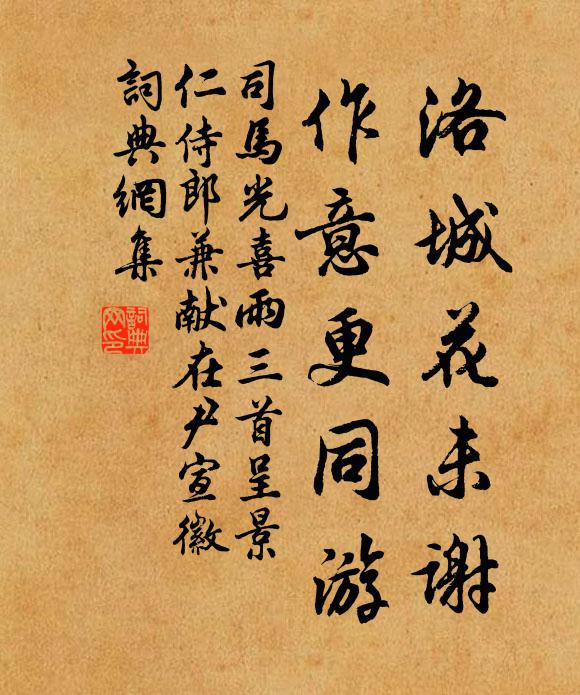 洛城花未谢
作意更同游
司馬光喜雨三首呈景
仁侍郎兼献在尹宣徽
詞典網集
詞典網印